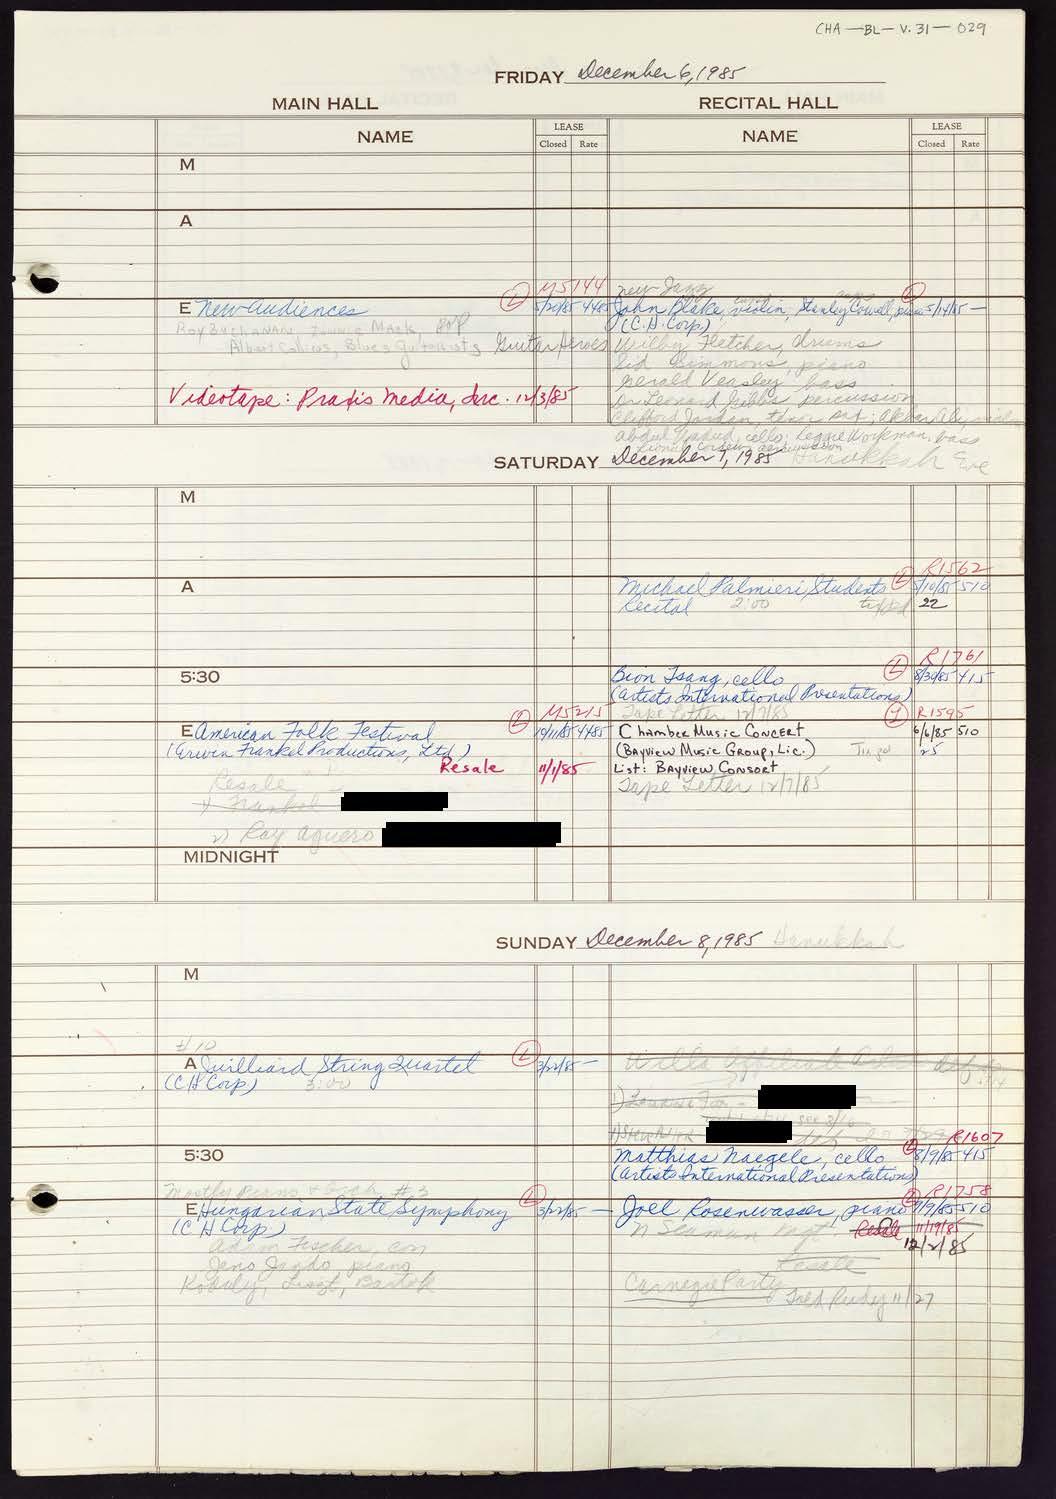 CHA-BL-V.31-029
FRIDAY December 6, 1985
MAIN HALL RECITAL HALL
NAME LEASE Closed Rate NAME LEASE Closed Rate
M
A
M5144 new Jazz
E New Audiences (L) 5/21/85 4485 John Blake, violin, Stanley Cowell, piano 5/14/85 —
(C.H. Corp)
Roy Buchanan, Lonnie Mack,
Albert Collins, Blues Guitarists Guitar Heroes Wilby Fletcher, drums
Sid Simmons, piano
Gerald Veasley bass
Videotape: Praxis Media, Inc. 12/3/85 Dr Leonard Gibbs percussion
Clifford Jordan, tenor sax; Akbar Ali, violin
Abdul Wadud, cello; Reggie Workman, bass
SATURDAY December 7, 1985 Hanukkah Eve
M
R1562
A Michael Palmieri Students (L) 5/10/85 510
Recital 2:00 22
R1761
5:30 Bion Tsang, cello (L) 8/30/85 415
(Artists International Presentations)
M5215 Tape Letter 12/7/85 R1595
E American Folk Festival (L) 10/11/85 4485 Chamber Music Concert 6/6/85 510
(Erwin Frankel Productions, Ltd.) (Bayview Music Group, Inc.) 25
Resale 11/1/85 List: Bayview Consort
Resale Tape Letter 12/7/85
1) Frankel
2) Ray Aguero
MIDNIGHT
SUNDAY December 8, 1985 Hanukkah
M
#10
A Juilliard String Quartet (L) 3/22/85 —
(C H Corp) 3:00
R1607
5:30 Matthias Naegele, cello (L) 8/9/85 415
(Artists International Presentations)
#3 R1758
E Hungarian State Symphony (L) 3/22/85 — Joel Rosenwasser, piano 9/9/85 510
(C H Corp.) Resale 11/19/85
Adam Fischer, con 12/2/85
Jeno Jando, piano Resale
Kodaly, Liszt, Bartok Carnegie Party
11/27